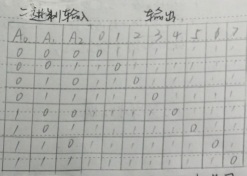 二进制输入 输出
A₀ A₁ A₂ 0 1 2 3 4 5 6 7
0 0 0 0 1 1 1 1 1 1 1
0 0 1 1 0 1 1 1 1 1 1
0 1 0 1 1 0 1 1 1 1 1
0 1 1 1 1 1 0 1 1 1 1
1 0 0 1 1 1 1 0 1 1 1
1 0 1 1 1 1 1 1 0 1 1
1 1 0 1 1 1 1 1 1 0 1
1 1 1 1 1 1 1 1 1 1 0